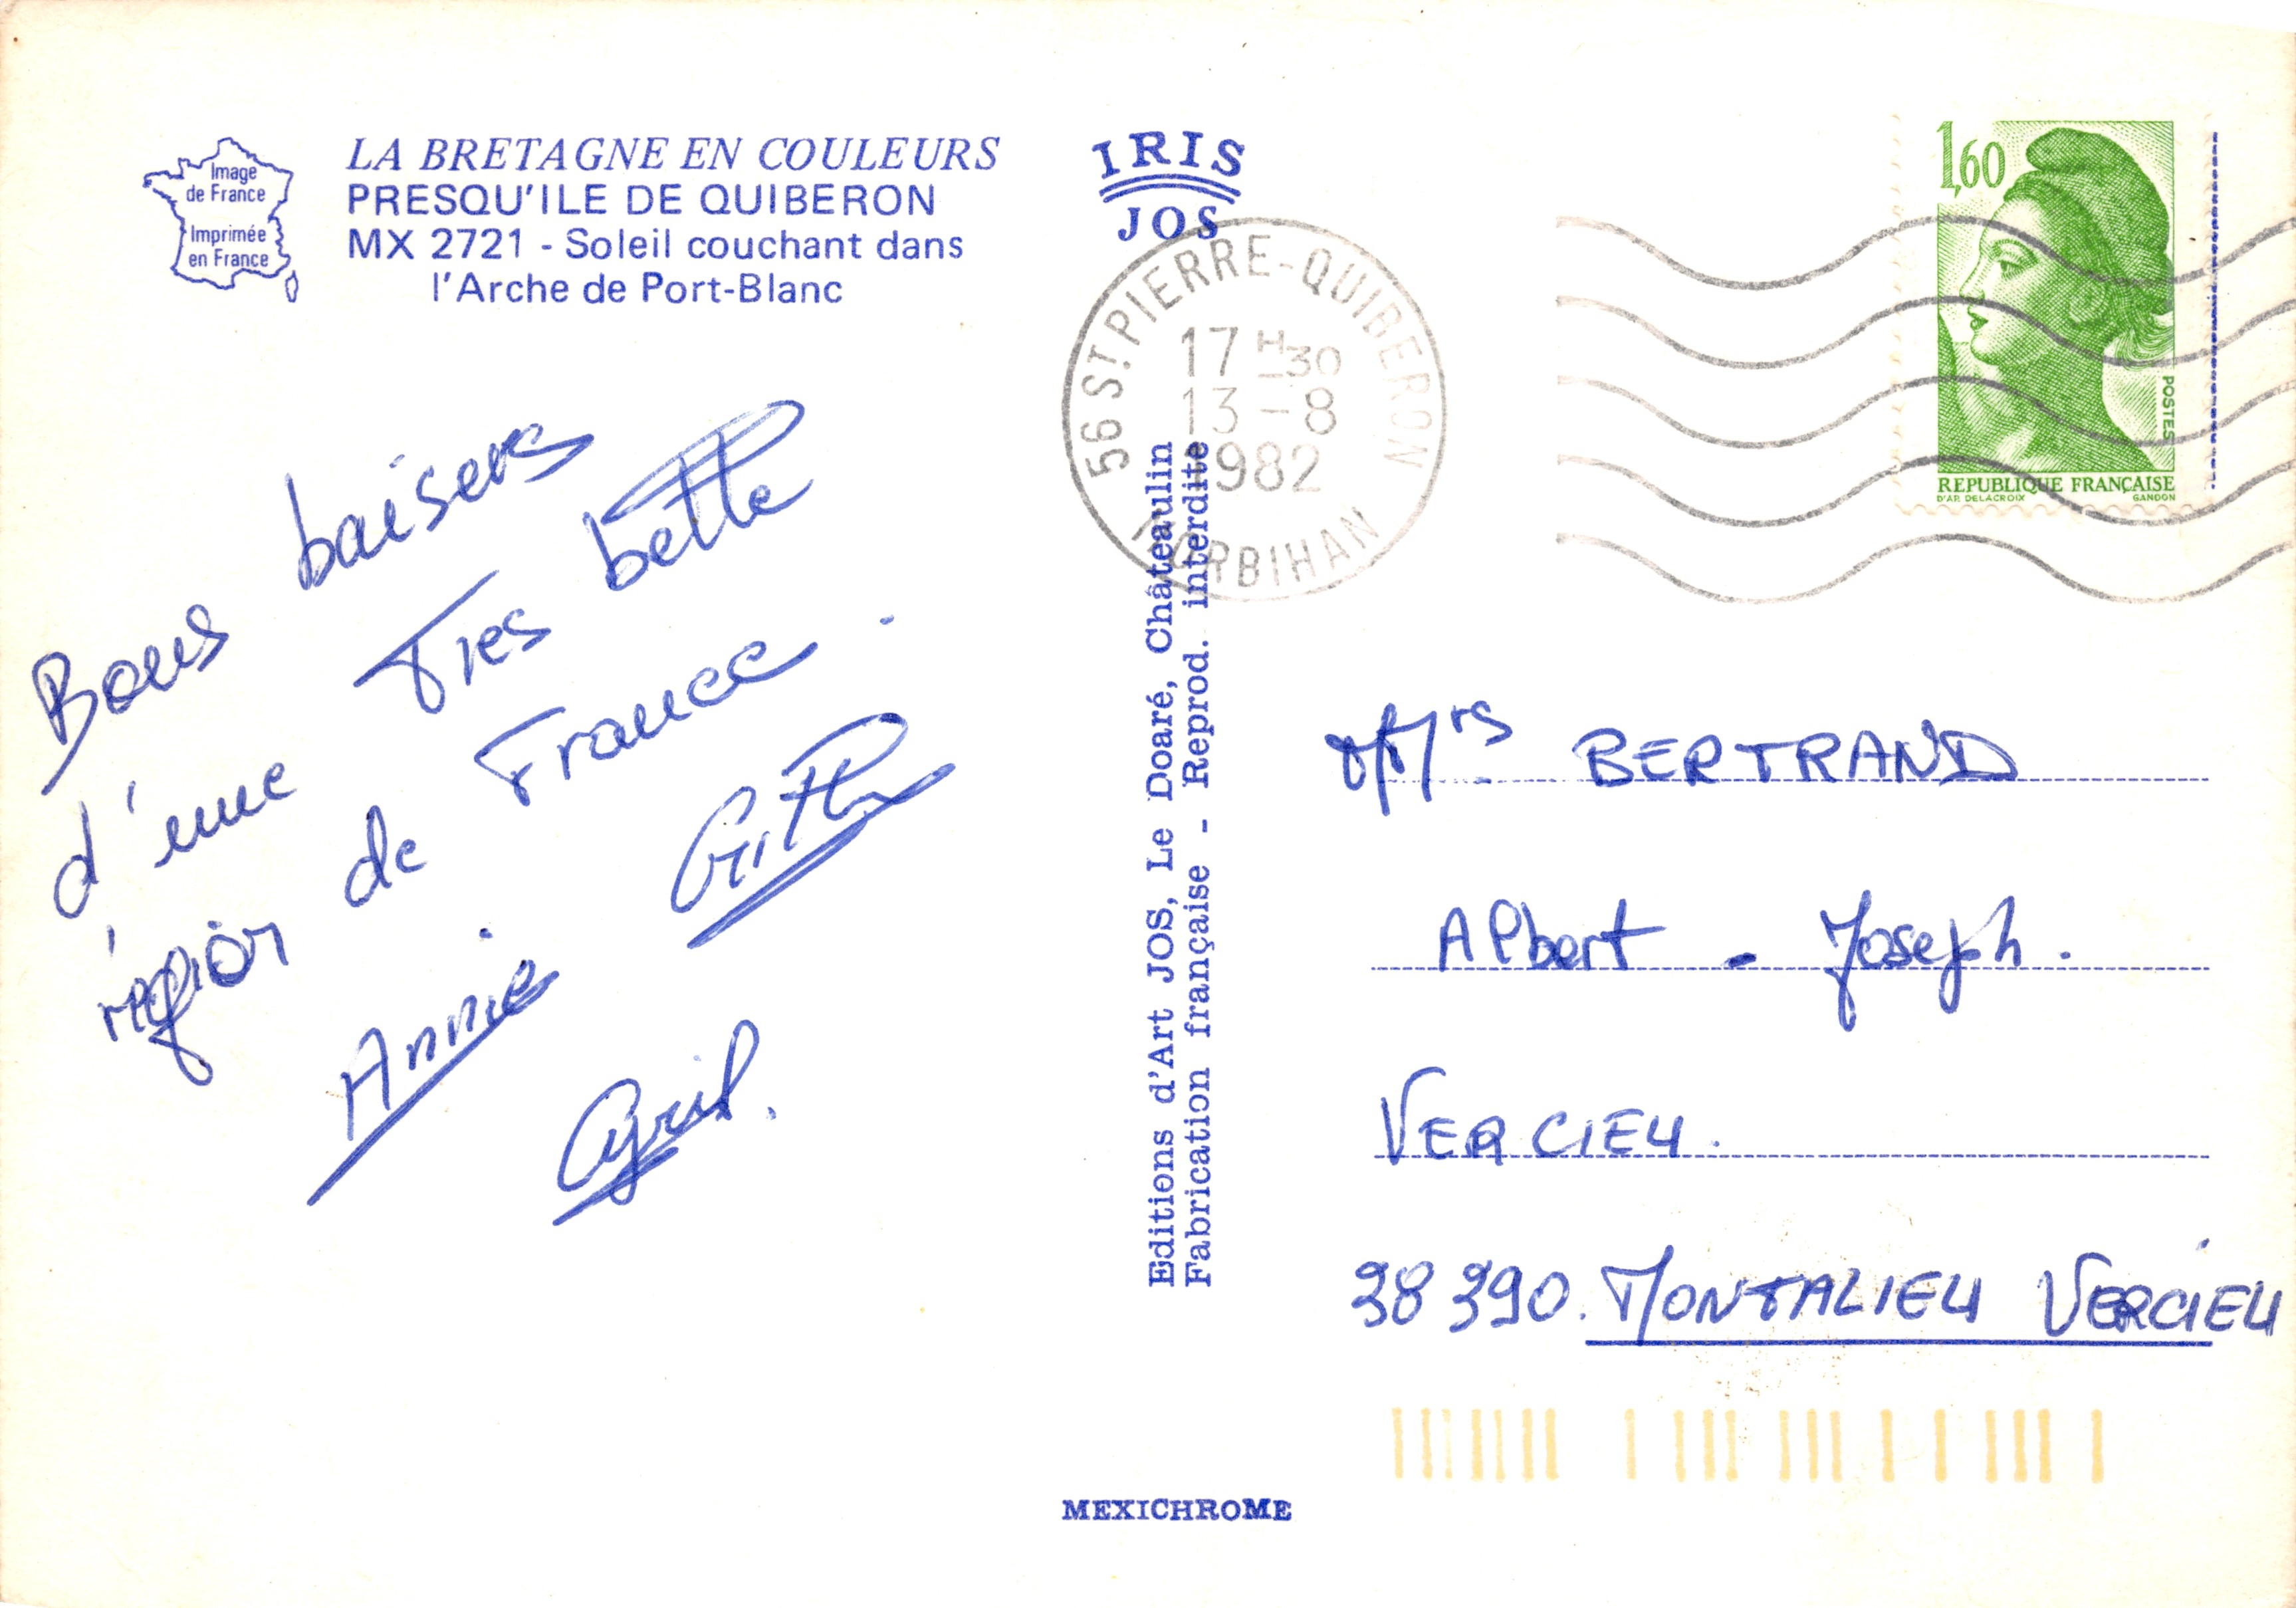 Image
de France
Imprimée
en France
LA BRETAGNE EN COULEURS
PRESQU'ILE DE QUIBERON
MX 2721 - Soleil couchant dans
l'Arche de Port-Blanc
IRIS
JOS
56 ST PIERRE-QUIBERON
17 H 30
13 - 8
1982
MORBIHAN
1,60
POSTES
REPUBLIQUE FRANÇAISE
D'AP. DELACROIX GANDON
Bons baisers
d'une Tres belle
région de France.
Annie
Cyril.
Editions d'Art JOS, Le Doaré, Châteaulin
Fabrication française - Reprod. interdite
Mrs BERTRAND
Albert - Joseph.
VERCIEU.
38390. MONTALIEU VERCIEU
MEXICHROME